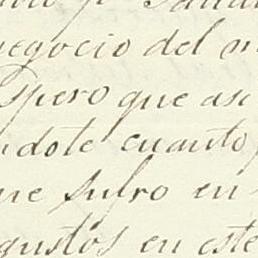 negocio del m
Espero que asi
ndote cuanto
ue sufro en
gustos en este